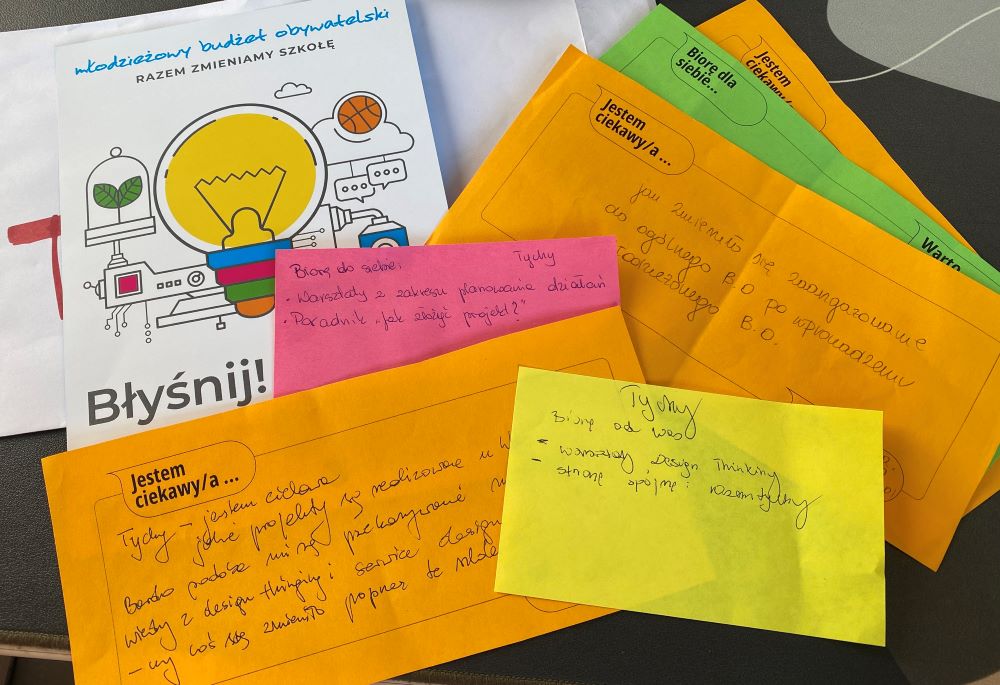 młodzieżowy budżet obywatelski
RAZEM ZMIENIAMY SZKOŁĘ
Błyśnij!
Jestem
ciekawy/a...
Biorę dla
siebie...
Warto
Jestem
ciekawy/a ...
jak zmieniło się zaangażowanie
do ogólnego B.O po wprowadzeniu
B.O.
Biorę do siebie: Tychy
• Warsztaty z zakresu planowania działań
• Poradnik „Jak złożyć projekt?"
Jestem
ciekawy/a ...
Tychy – jestem ciekawa
jakie projekty są realizowane u W
Bardzo podoba mi się przekazywanie
wiedzy z design thinking i service design
– czy coś się zmieniło poprzez te
Tychy
Biorę od was
- warsztaty „Design Thinking
- stronę spójną i